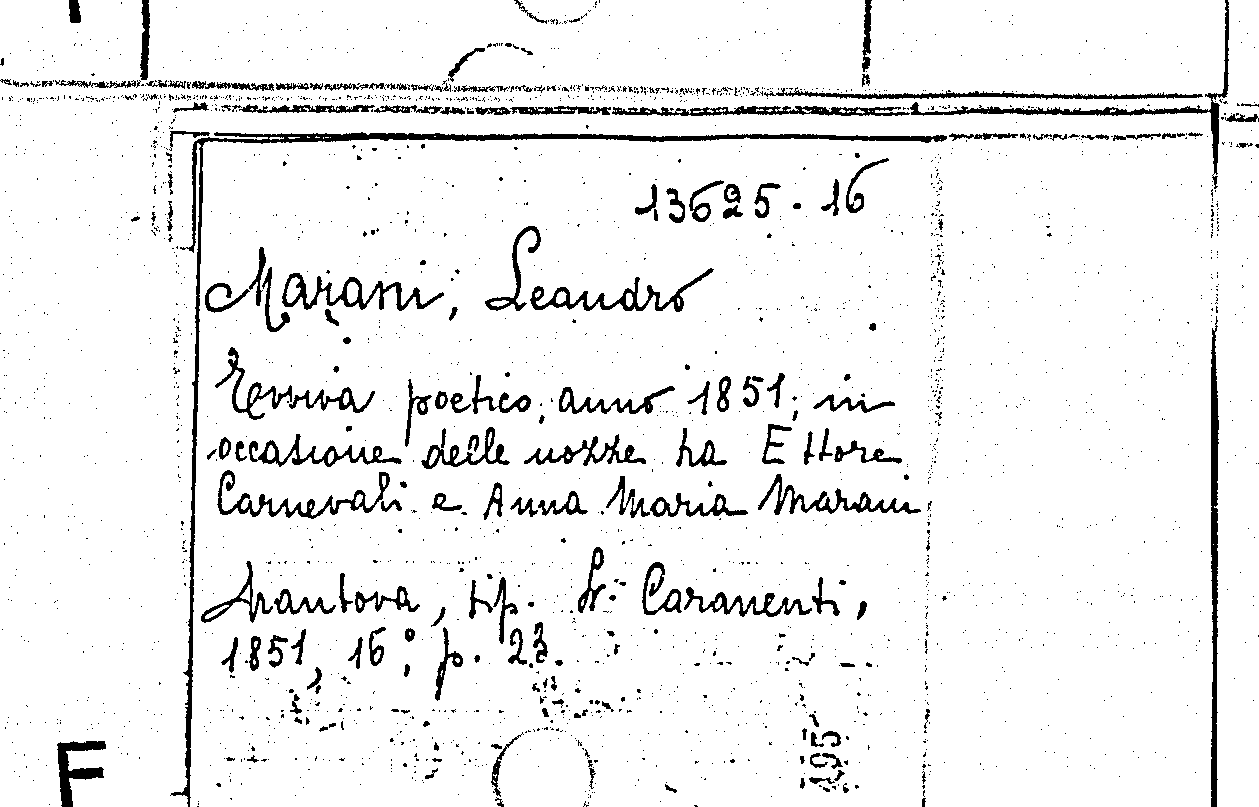 13625.16
Marani, Leandro
Evviva poetico, anno 1851, in
occasione delle nozze tra Ettore
Carnevali e Anna Maria Marani
Mantova, tip. Fr. Caranenti,
1851, 16°, p. 23.
195
F